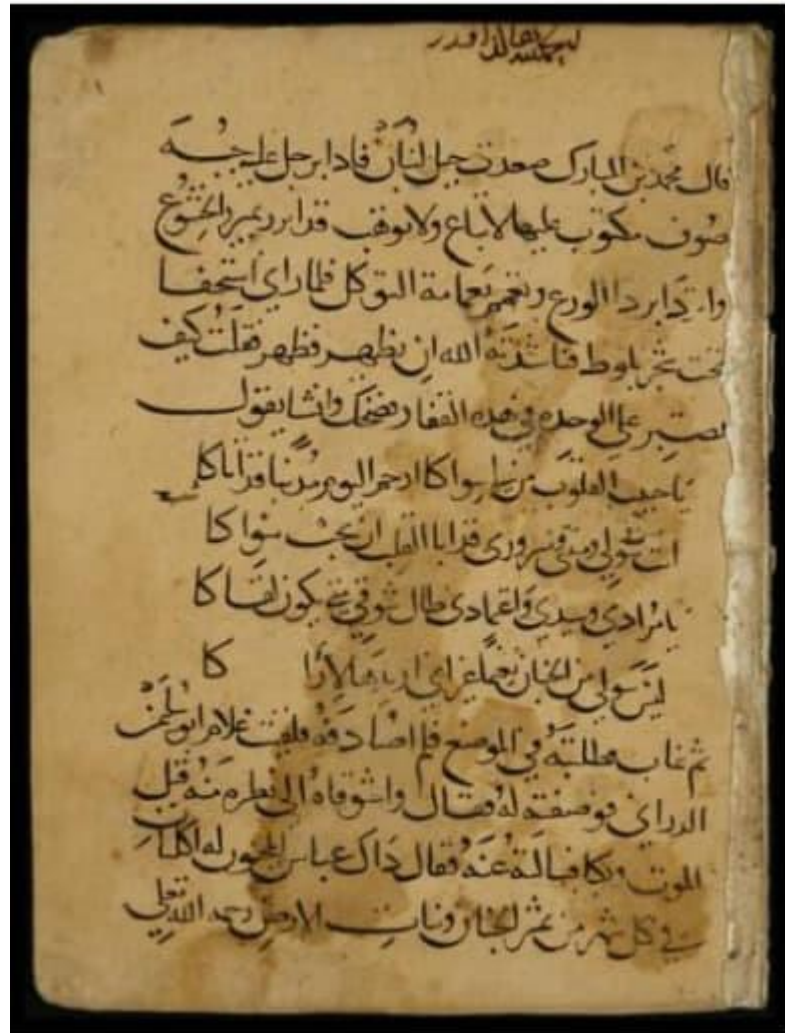 قال محمد بن المبارك صعدت جبل لبنان فاذا برجل عليه جبه
صوف مكتوب عليها لا تباع ولا توهب قد اتزر بميزر الخشوع
واتدا بردا الورع وتعمم بعمامة التوكل فلما راني استخفا
تحت شجر بلوط فناشدته الله ان يظهر فظهر فقلت كيف
تصبر على الوحده في هذه القفار فضحك وانشا يقول
يا حبيب القلوب من لي سواكا ارحم اليوم مذنبا قد اتاكا
انت سولي ومنيتي وسروري قد ابا القلب ان يحب سواكا
يا مرادي وسيدي واعتمادي طال شوقي متى يكون لقاكا
ليس سولي من الجنان نعيما غير اني اريدها لاراكا
ثم غاب فطلبته في الموضع فلم اصادفه فلقيت غلام ابو سليمن
الداراني فوصفته له فقال واشوقاه الى نظره منه قبل
الموت وبكا فسالته عنه فقال ذاك عباس المجنون له اكلتان
في كل شهر من ثمر الجنان ونبات الارض رحمه الله تعلى